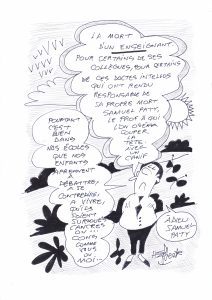 LA MORT
D'UN ENSEIGNANT
POUR CERTAINS DE SES
COLLÈGUES, POUR CERTAINS
DE CES DOCTES INTELLOS
QUI ONT RENDU
RESPONSABLE DE
SA PROPRE MORT
SAMUEL PATY,
LE PROF À QUI
L'ON OSERA
COUPER
LA TÊTE
AVEC
UN CANIF
POURTANT
C'EST
BIEN
DANS
NOS ÉCOLES
QUE NOS
ENFANTS
APPRENNENT À
DÉBATTRE,
À SE
CONTREDIRE,
À VIVRE,
QU'ILS
SOIENT
SURDOUÉS
CANCRES
OU...
CONS
COMME
VOUS
OU
MOI...
ADIEU
SAMUEL
PATY